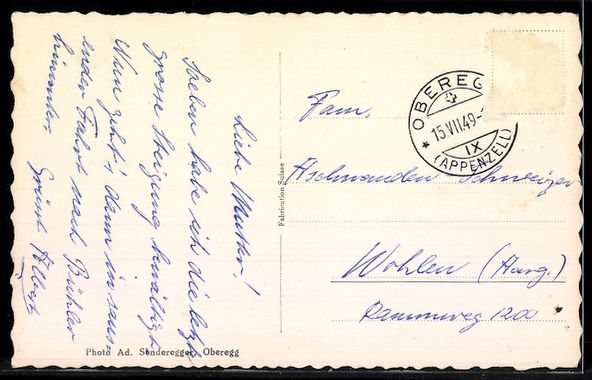 Liebe Mutter!
Soeben habe ich die letzte
grosse Steigung bewältigt
Nun geht's dann in saus-
ender Fahrt nach Bühler
hinunter.
Grüsst Albert
Fabrication Suisse
Photo Ad. Sonderegger, Oberegg
OBEREGG
15.VII.49-
IX
(APPENZELL)
Fam.
Aschwanden Schweizer
Wohlen (Aarg.)
Rammweg 1200